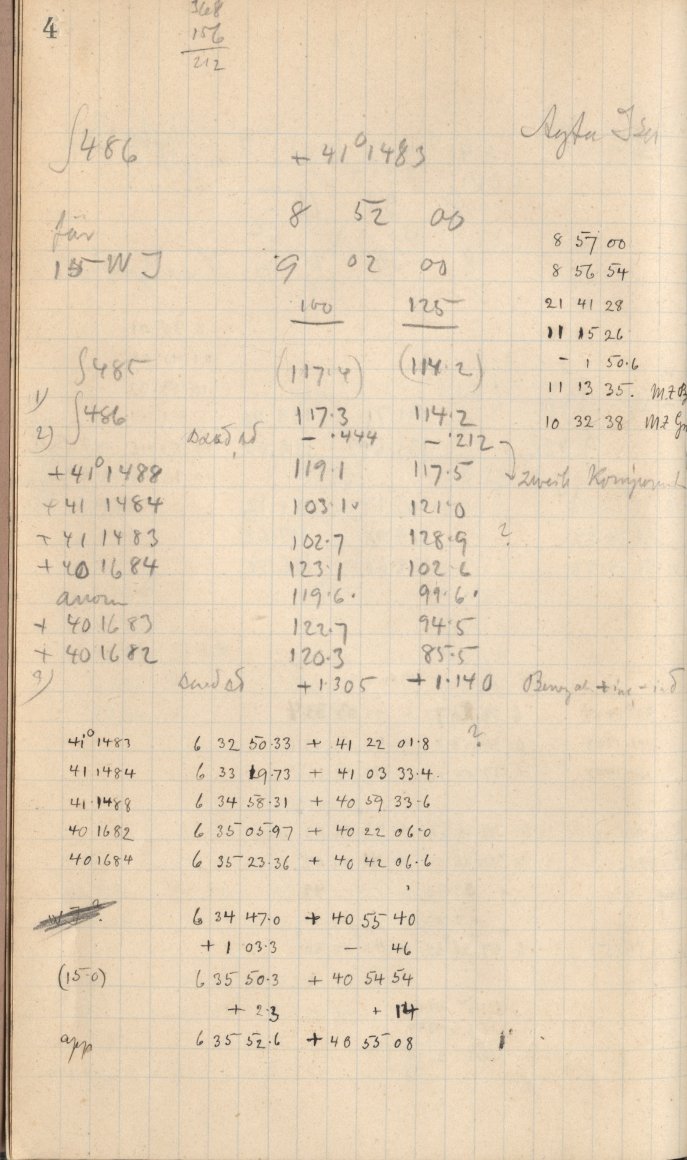 4
368
156
212
∫486 + 41° 1483
für 8 52 00
15 W J 9 02 00
100 125
8 57 00
8 56 54
21 41 28
11 15 26
- 1 50.6
11 13 35. MZ
10 32 38 MZ
∫485 (117.4) (114.2)
1) ∫486 117.3 114.2
2) - .444 - .212
+41° 1488 119.1 117.5 zweite
+41 1484 103.1 121.0
+41 1483 102.7 128.9 ?
+40 1684 123.1 102.6
anom 119.6. 99.6.
+ 40 1683 122.7 94.5
+ 40 1682 120.3 85.5
3) +1.305 +1.140
?
41° 1483 6 32 50.33 + 41 22 01.8
41 1484 6 33 19.73 + 41 03 33.4
41.1488 6 34 58.31 + 40 59 33.6
40 1682 6 35 05.97 + 40 22 06.0
40 1684 6 35 23.36 + 40 42 06.6
6 34 47.0 + 40 55 40
+ 1 03.3 - 46
(15.0) 6 35 50.3 + 40 54 54
+ 2.3 + 14
app 6 35 52.6 + 40 55 08